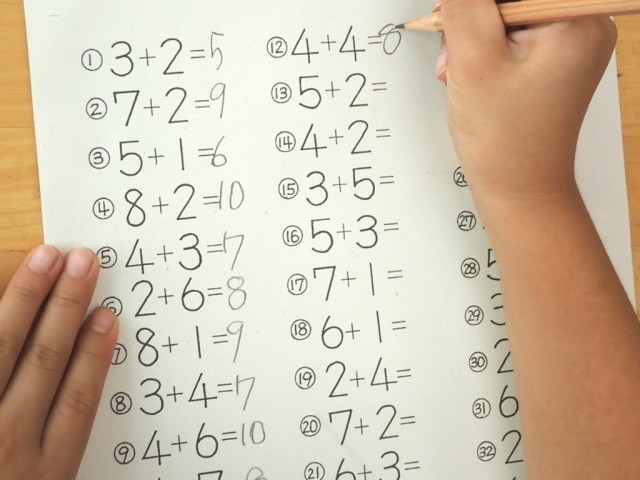 ① 3+2=5
② 7+2=9
③ 5+1=6
④ 8+2=10
⑤ 4+3=7
⑥ 2+6=8
⑦ 8+1=9
⑧ 3+4=7
⑨ 4+6=10
⑫ 4+4=8
⑬ 5+2=
⑭ 4+2=
⑮ 3+5=
⑯ 5+3=
⑰ 7+1=
⑱ 6+1=
⑲ 2+4=
⑳ 7+2=
㉑ 6+3=
㉗
㉘ 5
㉙ 3
㉚ 2
㉛ 6
㉜ 2